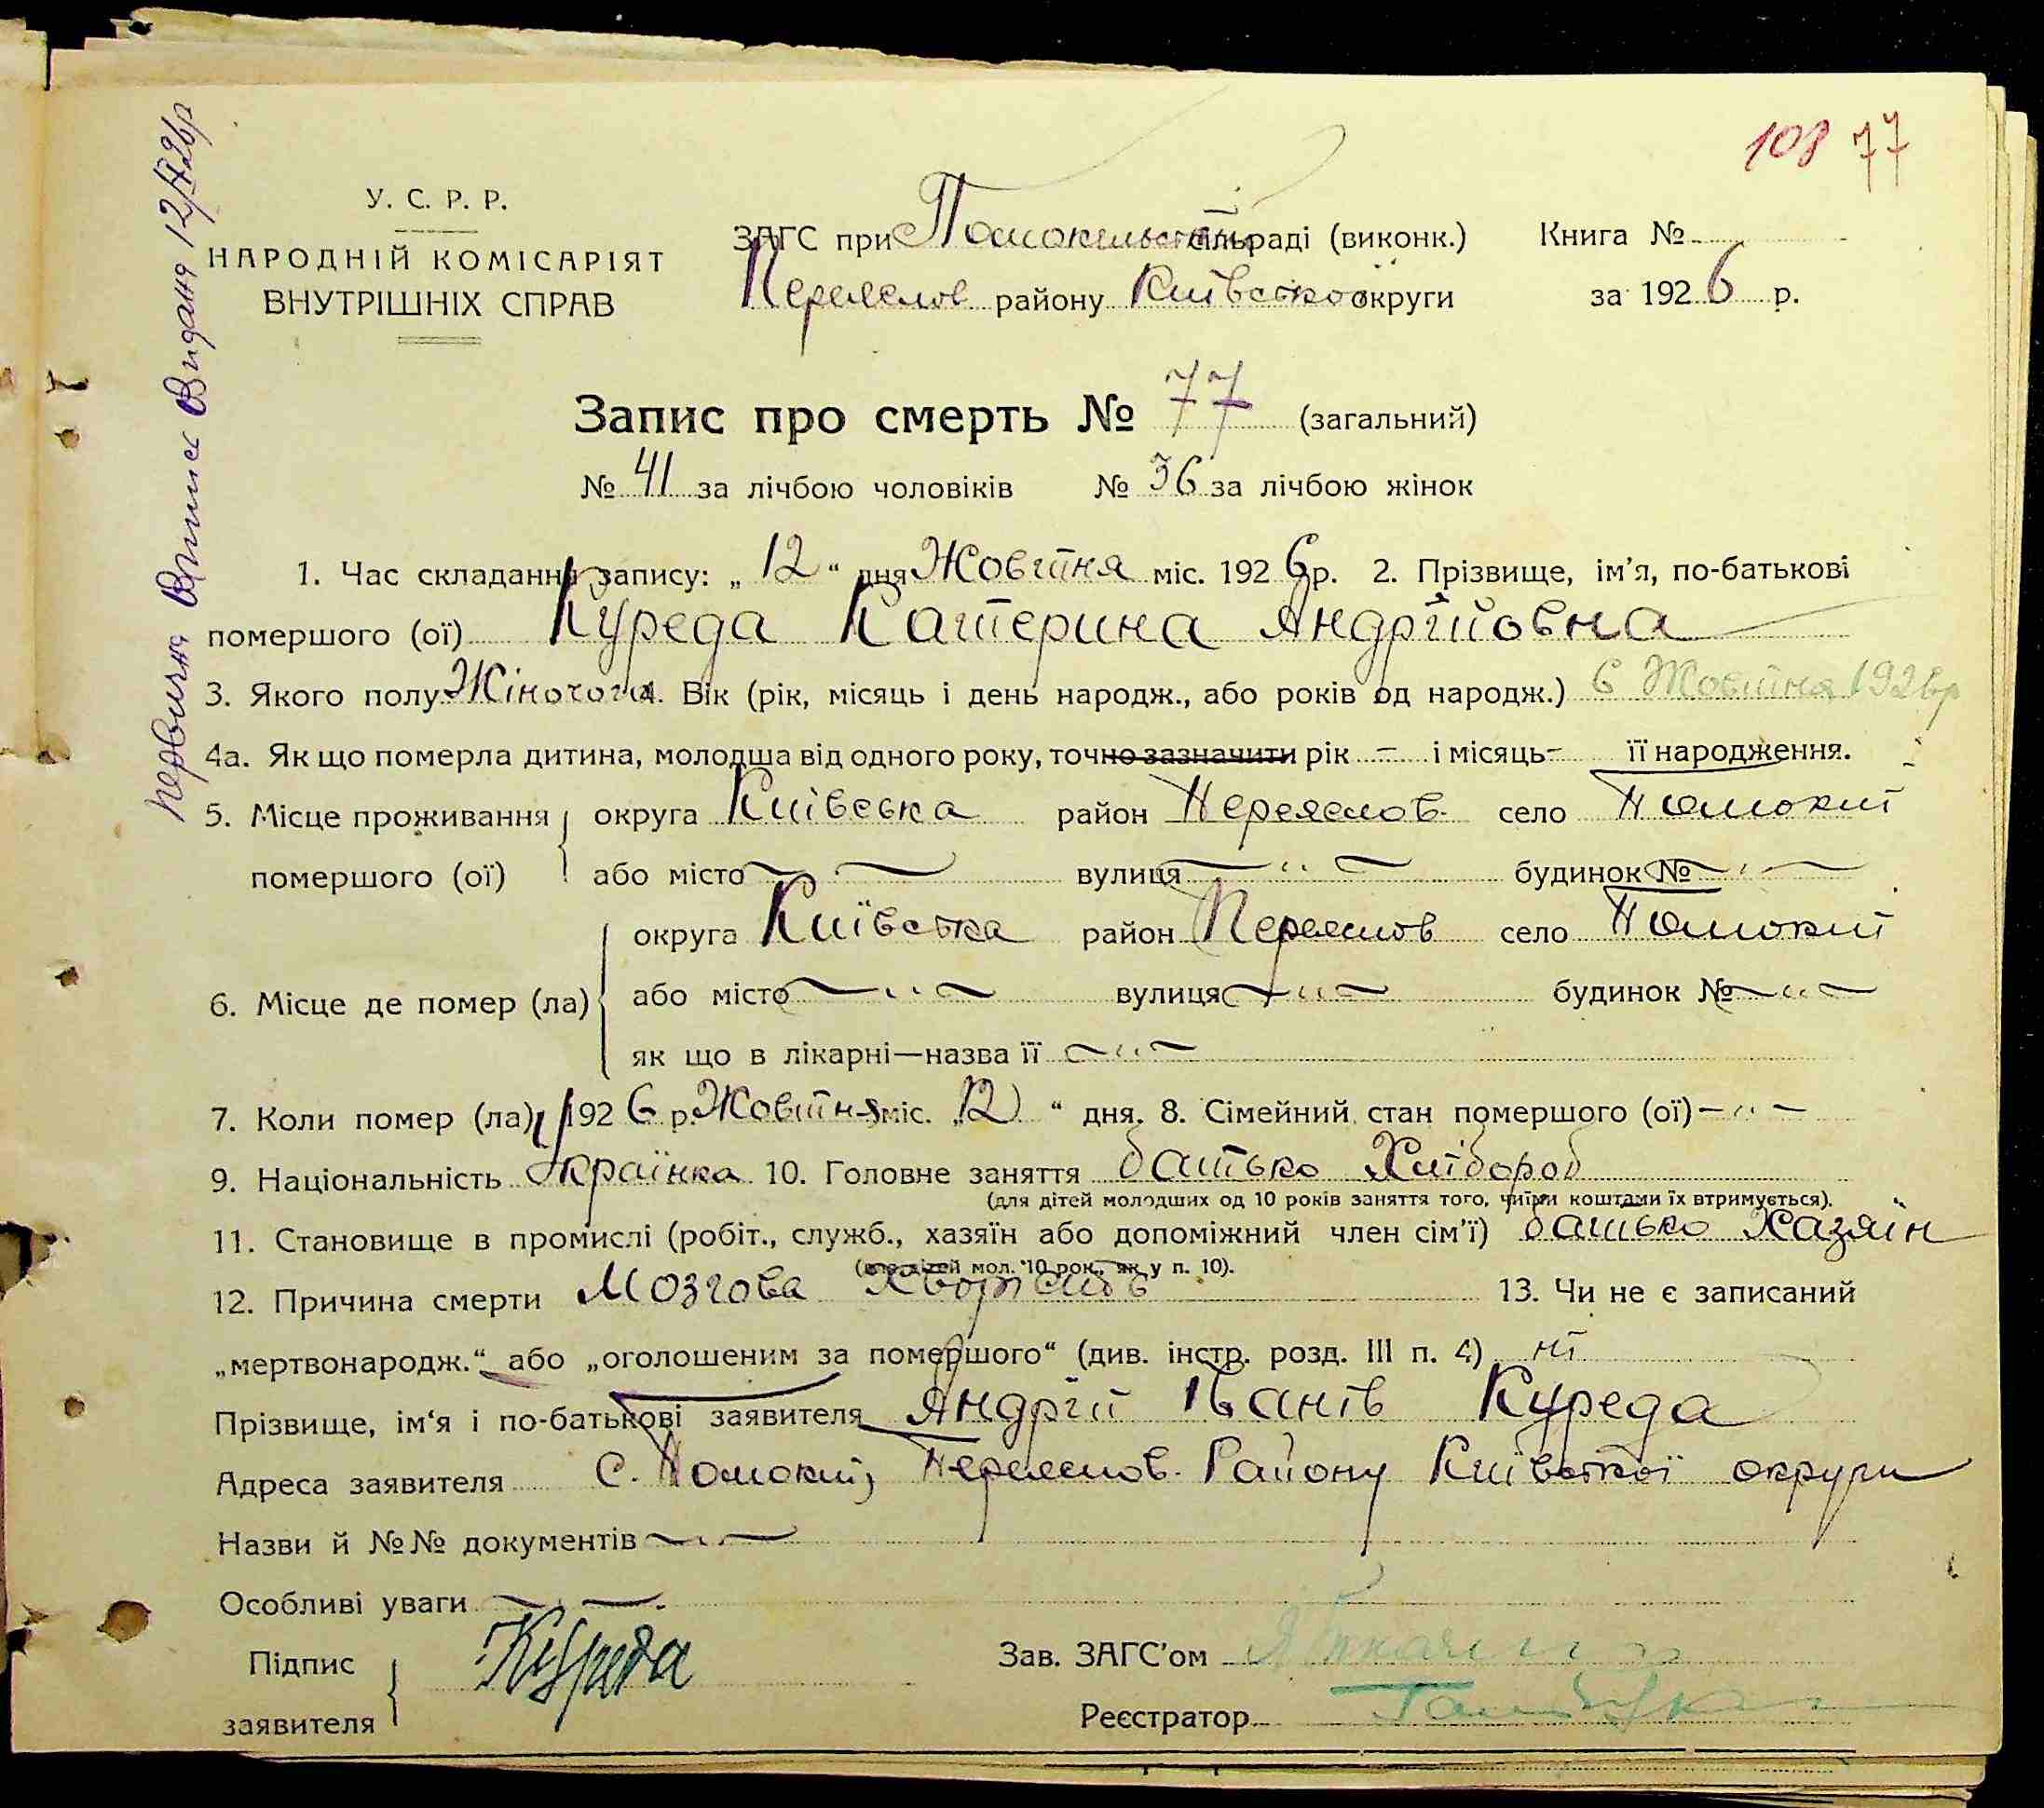 108 77
У. С. Р. Р.
НАРОДНІЙ КОМІСАРІЯТ
ВНУТРІШНІХ СПРАВ
ЗАГС при Помокельській сільраді (виконк.) Книга №
Переяслов району Київської округи за 1926 р.
Запис про смерть № 77 (загальний)
№ 41 за лічбою чоловіків № 36 за лічбою жінок
1. Час складання запису: „ 12 “ дня Жовтня міс. 1926 р. 2. Прізвище, ім’я, по-батькові
помершого (ої) Куреда Катерина Андрійовна
3. Якого полу Жіночого 4. Вік (рік, місяць і день народж., або років од народж.) 6 Жовтня 1926р
4а. Як що померла дитина, молодша від одного року, точно зазначити рік – і місяць – її народження.
5. Місце проживання округа Київська район Переяслов. село Помоклі
помершого (ої) або місто — вулиця — " — будинок № — " —
округа Київська район Переяслов село Помоклі
6. Місце де помер (ла) або місто — " — вулиця — " — будинок № — " —
як що в лікарні—назва її — " —
7. Коли помер (ла) 1926 р. Жовтня міс. „12 “ дня. 8. Сімейний стан помершого (ої) — " —
9. Національність Українка 10. Головне заняття батько Хлібороб
(для дітей молодших од 10 років заняття того, чиїми коштами їх втримується).
11. Становище в промислі (робіт., служб., хазяїн або допоміжний член сім’ї) батько Хазяїн
(про дітей мол. 10 рок., як у п. 10).
12. Причина смерти Мозгова 13. Чи не є записаний
„мертвонародж.“ або „оголошеним за помершого“ (див. інстр. розд. III п. 4) ні
Прізвище, ім‘я і по-батькові заявителя Андрій Іванів Куреда
Адреса заявителя с. Помоклі, Переяслов. Району Київської округи
Назви й №№ документів — " —
Особливі уваги — " —
Підпис Куреда Зав. ЗАГС’ом
заявителя Реєстратор
Первична Випис Видана 12/X 26р